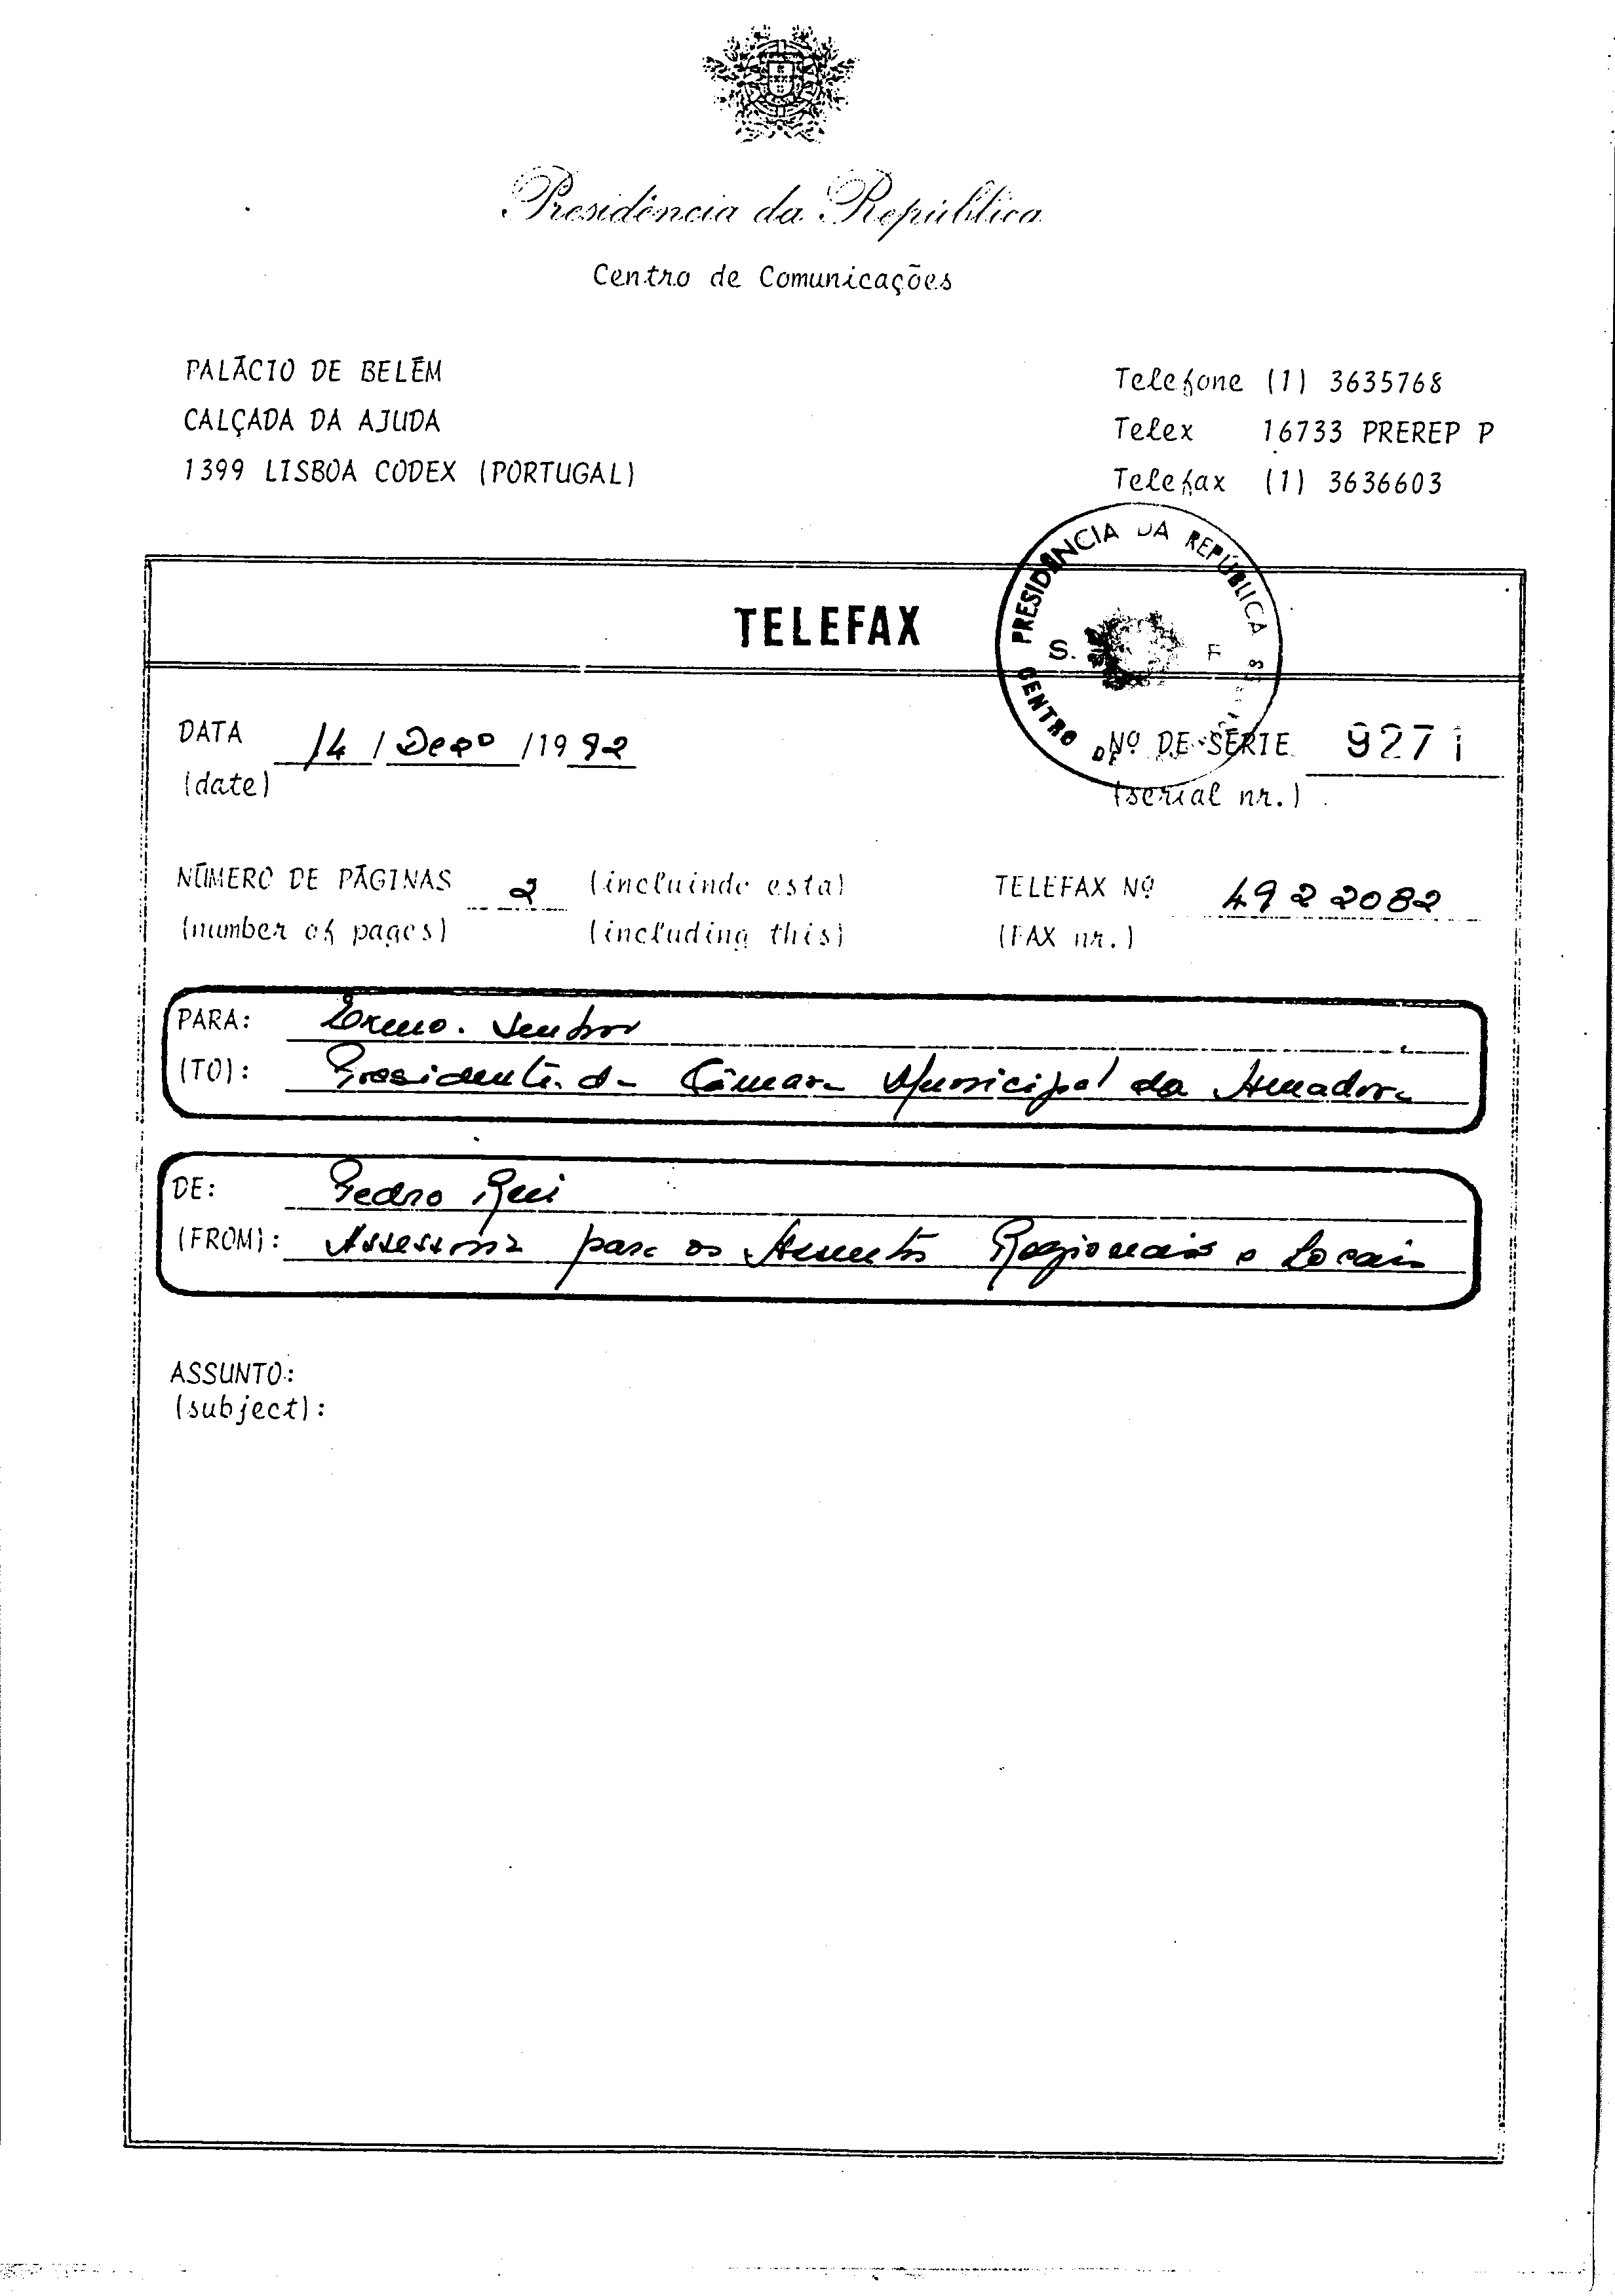 Presidência da República
Centro de Comunicações
PALÁCIO DE BELÉM
CALÇADA DA AJUDA
1399 LISBOA CODEX (PORTUGAL)
Telefone (1) 3635768
Telex 16733 PREREP P
Telefax (1) 3636603
PRESIDÊNCIA DA REPÚBLICA
S. F
CENTRO DE
TELEFAX
DATA 14 / Dezº / 1992
(date)
Nº DE SÉRIE 9271
(serial nr.)
NÚMERO DE PÁGINAS 2 (incluindo esta)
(number of pages) (including this)
TELEFAX Nº 4922082
(FAX nr.)
PARA: Exmo. Senhor
(TO): Presidente da Câmara Municipal da Amadora
DE: Pedro
(FROM): Assessoria para os Assuntos Regionais e Locais
ASSUNTO:
(subject):